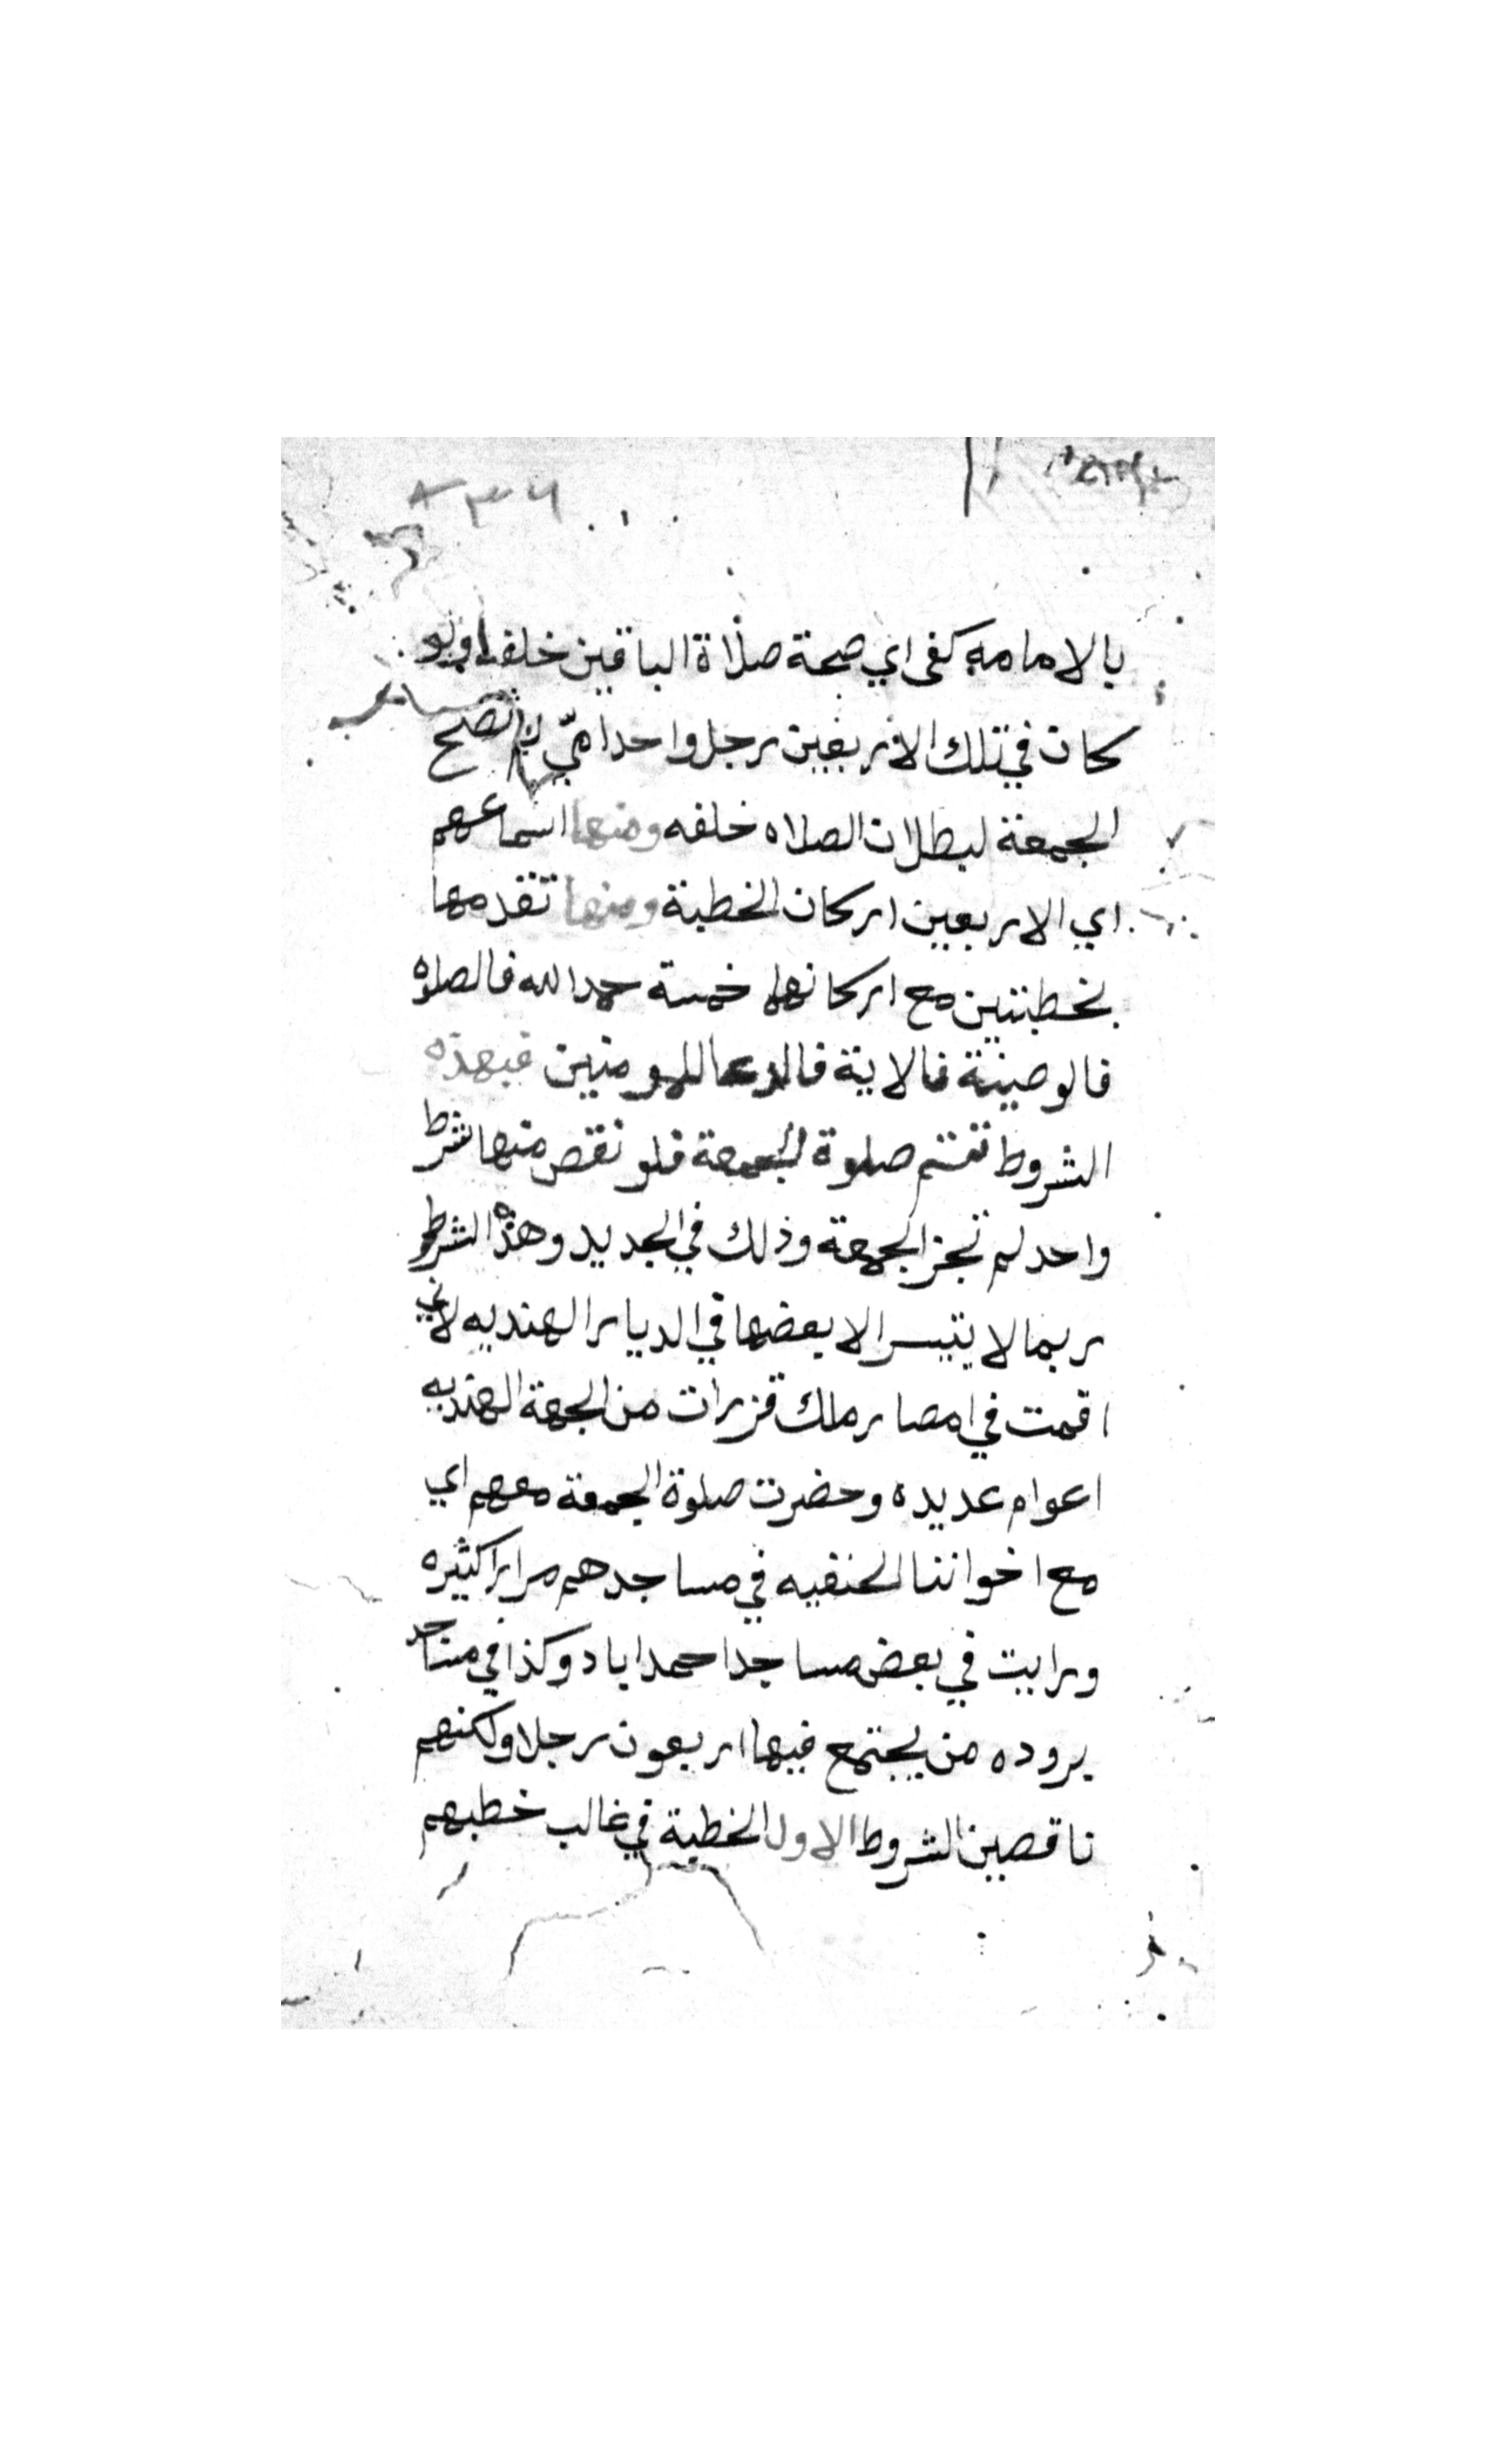 ٨٣٦
بالامامه كفى اي صحة صلاة الباقين خلفه ولو
كان في تلك الاربعين رجل واحد امّي لم تصح
الجمعة لبطلان الصلاه خلفه ومنها اسماعهم
اي الاربعين اركان الخطبة ومنها تقدمها
بخطبتين مع اركانهما خمسة حمد الله فالصلوه
فالوصية فالاية فالدعا للمومنين فبهذه
الشروط تتم صلوة الجمعة فلو نقص منها شرط
واحد لم تجز الجمعة وذلك في الجديد وهذه الشروط
ربما لا يتيسر الا بعضها في الديار الهنديه لاني
اقمت في امصار ملك قزرات من الجهة الهنديه
اعوام عديده وحضرت صلوة الجمعة معهم اي
مع اخواننا الحنفيه في مساجدهم مرارا كثيره
ورايت في بعض مساجد احمداباد وكذا في مساجد
بروده من يجتمع فيها اربعون رجلا ولكنهم
ناقصين الشروط الاول الخطبة في غالب خطبهم